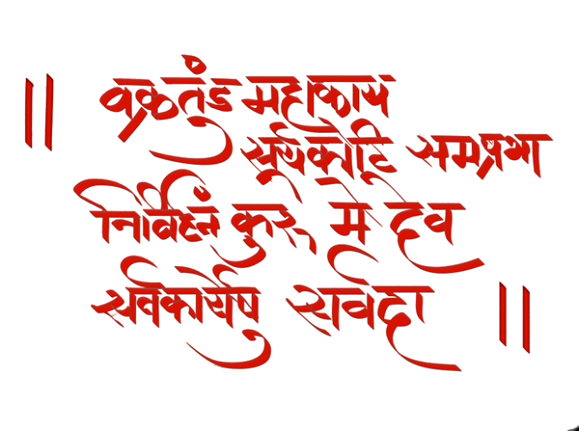 || वक्रतुंड महाकाय
सूर्यकोटि समप्रभा
निर्विघ्नं कुरु मे देव
सर्वकार्येषु सर्वदा ||